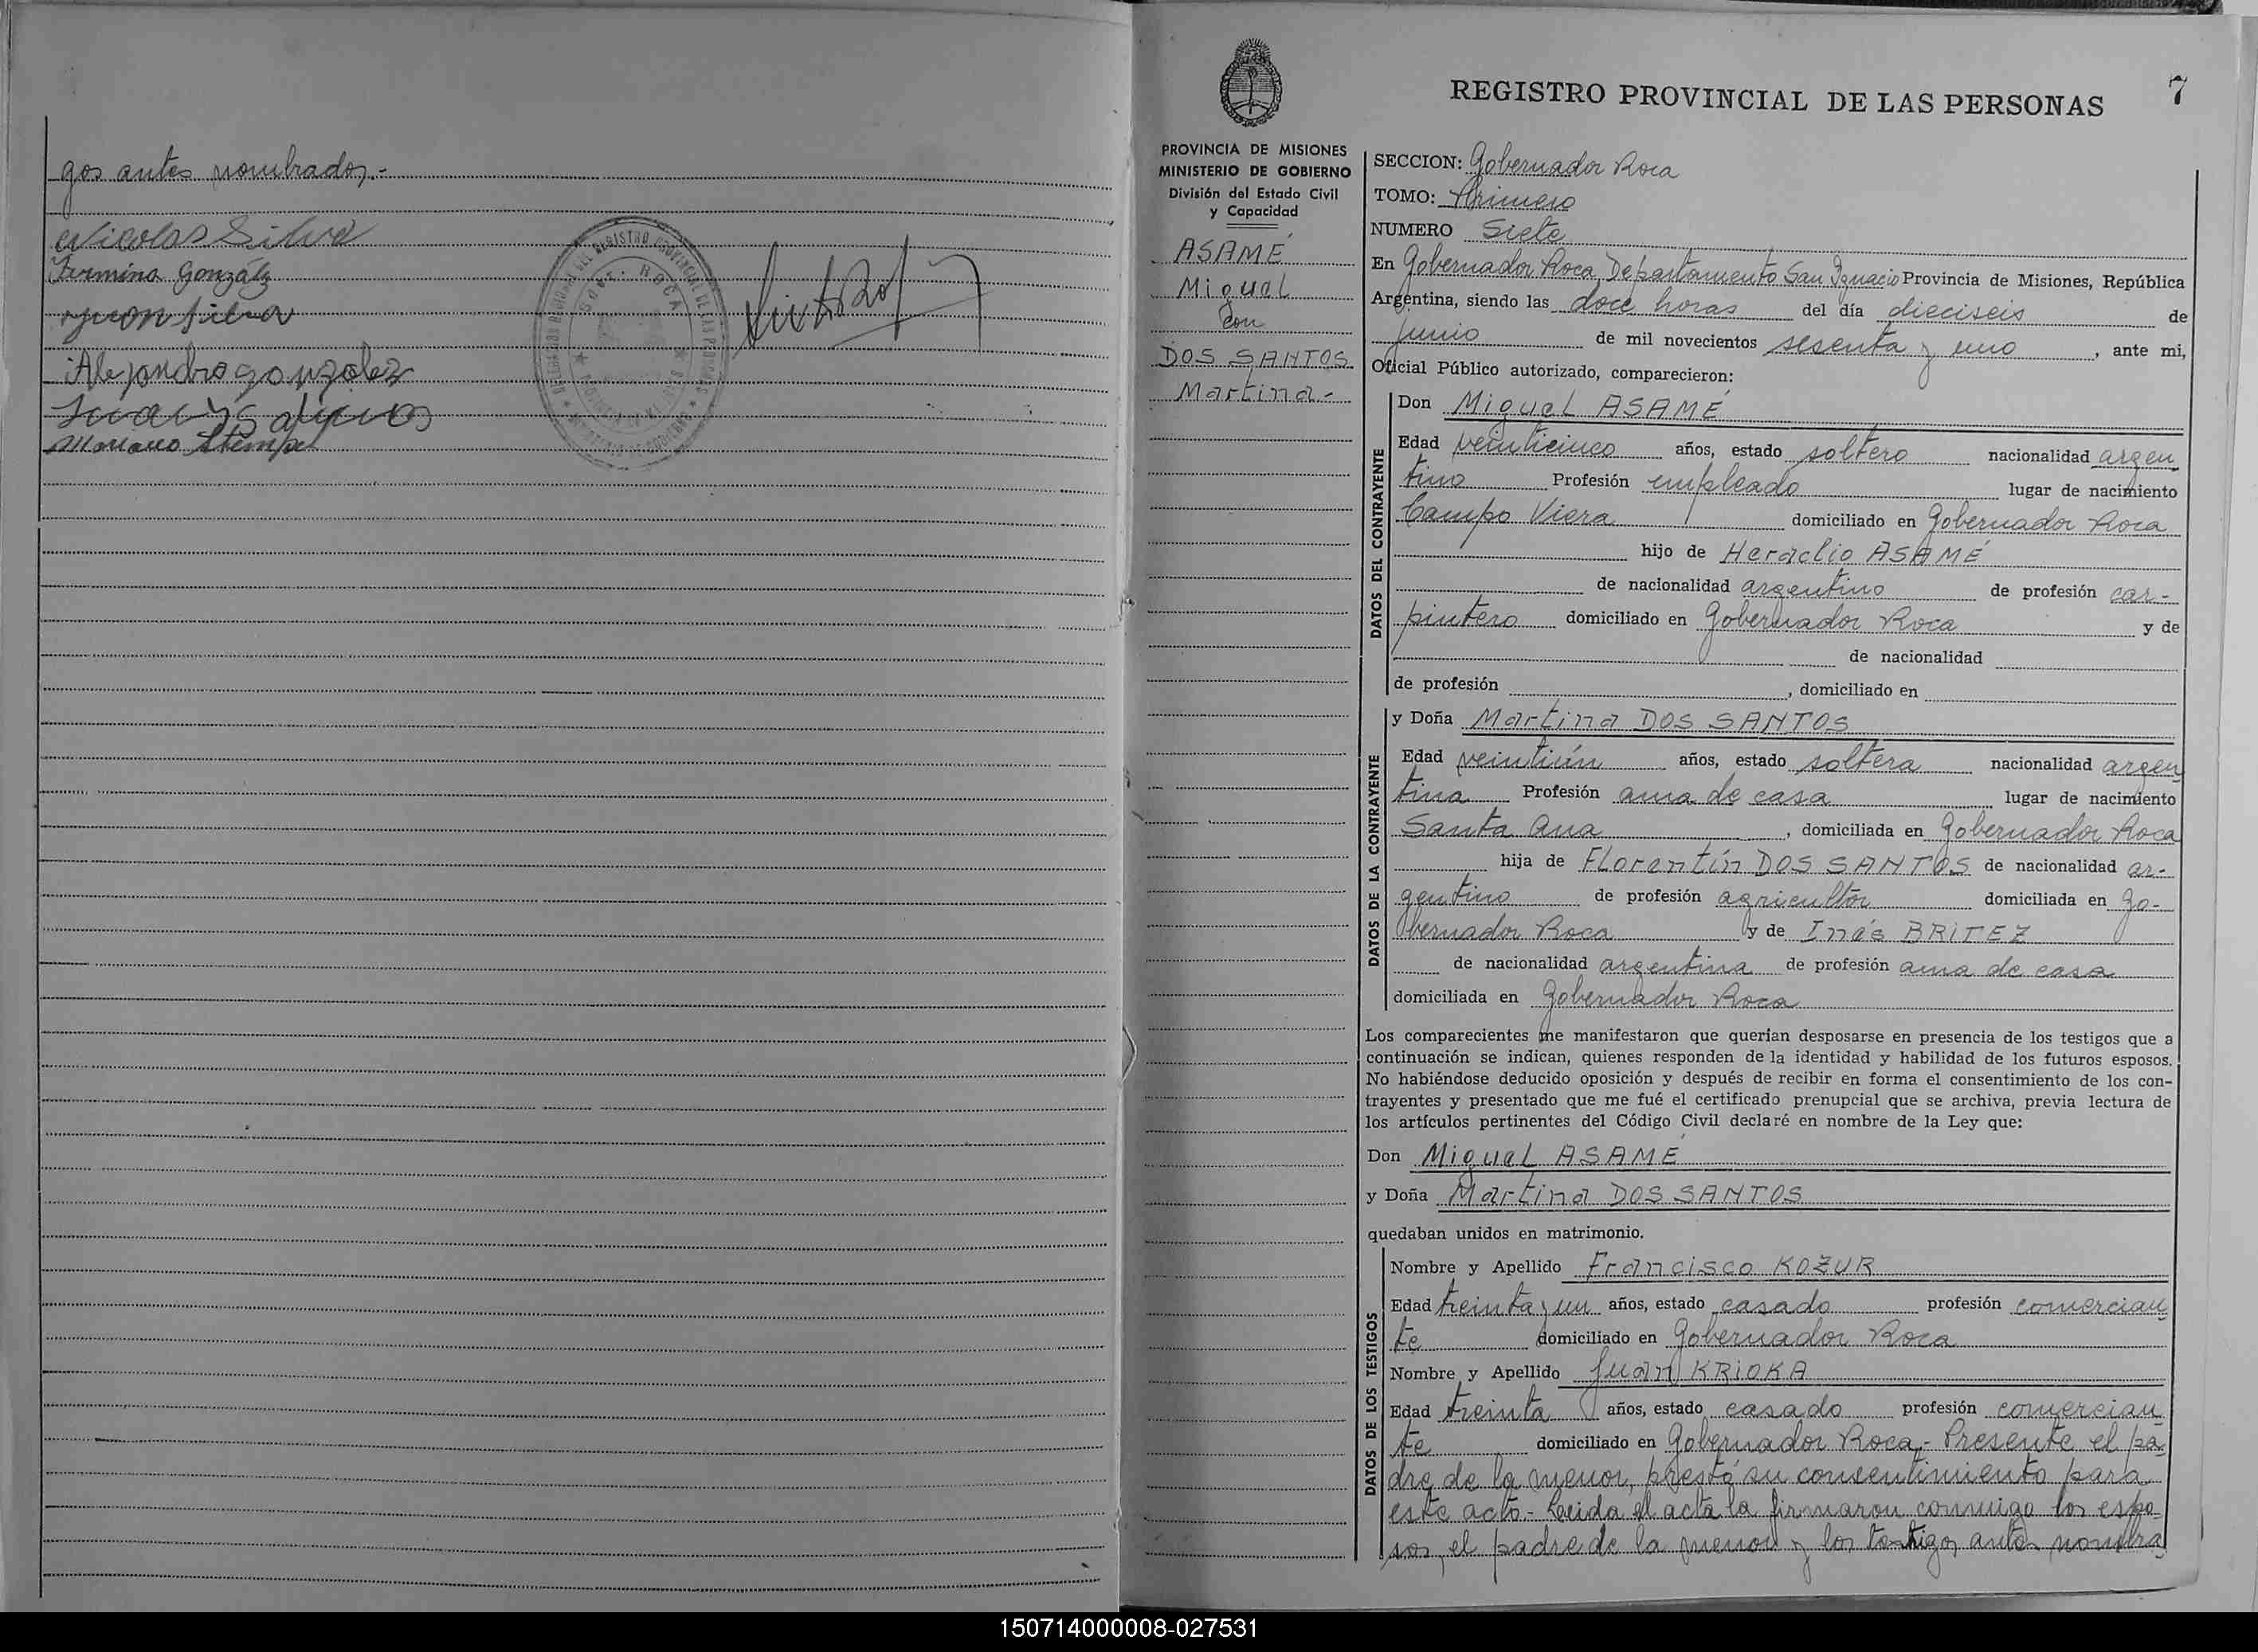 gos antes nombrados.-
Nicolas Silva
Fermina González
Juan Silva
Alejandro gonzalez
Mariano Stempel
REGISTRO PROVINCIAL DE LAS PERSONAS
GOB. ROCA
7
REGISTRO PROVINCIAL DE LAS PERSONAS
PROVINCIA DE MISIONES
MINISTERIO DE GOBIERNO
División del Estado Civil
y Capacidad
ASAMÉ
Miguel
con
DOS SANTOS
Martina.-
SECCION: Gobernador Roca
TOMO: Primero
NUMERO Siete
En Gobernador Roca, Departamento San Ignacio Provincia de Misiones, República
Argentina, siendo las doce horas del día dieciseis de
junio de mil novecientos sesenta y uno, ante mi,
Oficial Público autorizado, comparecieron:
DATOS DEL CONTRAYENTE
Don Miguel ASAMÉ
Edad veinticinco años, estado soltero nacionalidad argen
tino Profesión empleado lugar de nacimiento
Campo Viera domiciliado en Gobernador Roca
hijo de Heraclio ASAMÉ
de nacionalidad argentino de profesión car-
pintero domiciliado en Gobernador Roca y de
de nacionalidad
de profesión , domiciliado en
DATOS DE LA CONTRAYENTE
y Doña Martina DOS SANTOS
Edad veintiún años, estado soltera nacionalidad argen
tina Profesión ama de casa lugar de nacimiento
Santa Ana, domiciliada en Gobernador Roca
hija de Florentín DOS SANTOS de nacionalidad ar-
gentino de profesión agricultor domiciliada en Go-
bernador Roca y de Inés BRITEZ
de nacionalidad argentina de profesión ama de casa
domiciliada en Gobernador Roca
Los comparecientes me manifestaron que querían desposarse en presencia de los testigos que a
continuación se indican, quienes responden de la identidad y habilidad de los futuros esposos.
No habiéndose deducido oposición y después de recibir en forma el consentimiento de los con-
trayentes y presentado que me fué el certificado prenupcial que se archiva, previa lectura de
los artículos pertinentes del Código Civil declaré en nombre de la Ley que:
Don Miguel ASAMÉ
y Doña Martina DOS SANTOS
quedaban unidos en matrimonio.
DATOS DE LOS TESTIGOS
Nombre y Apellido Francisco KOZUR
Edad treinta y un años, estado casado profesión comercian
te domiciliado en Gobernador Roca
Nombre y Apellido Juan KRIOKA
Edad treinta años, estado casado profesión comercian
te domiciliado en Gobernador Roca.- Presente el pa
dre de la menor, prestó su consentimiento para
este acto.- Leida el acta la firmaron conmigo los espo
sos, el padre de la menor y los testigos antes nombra
150714000008-027531